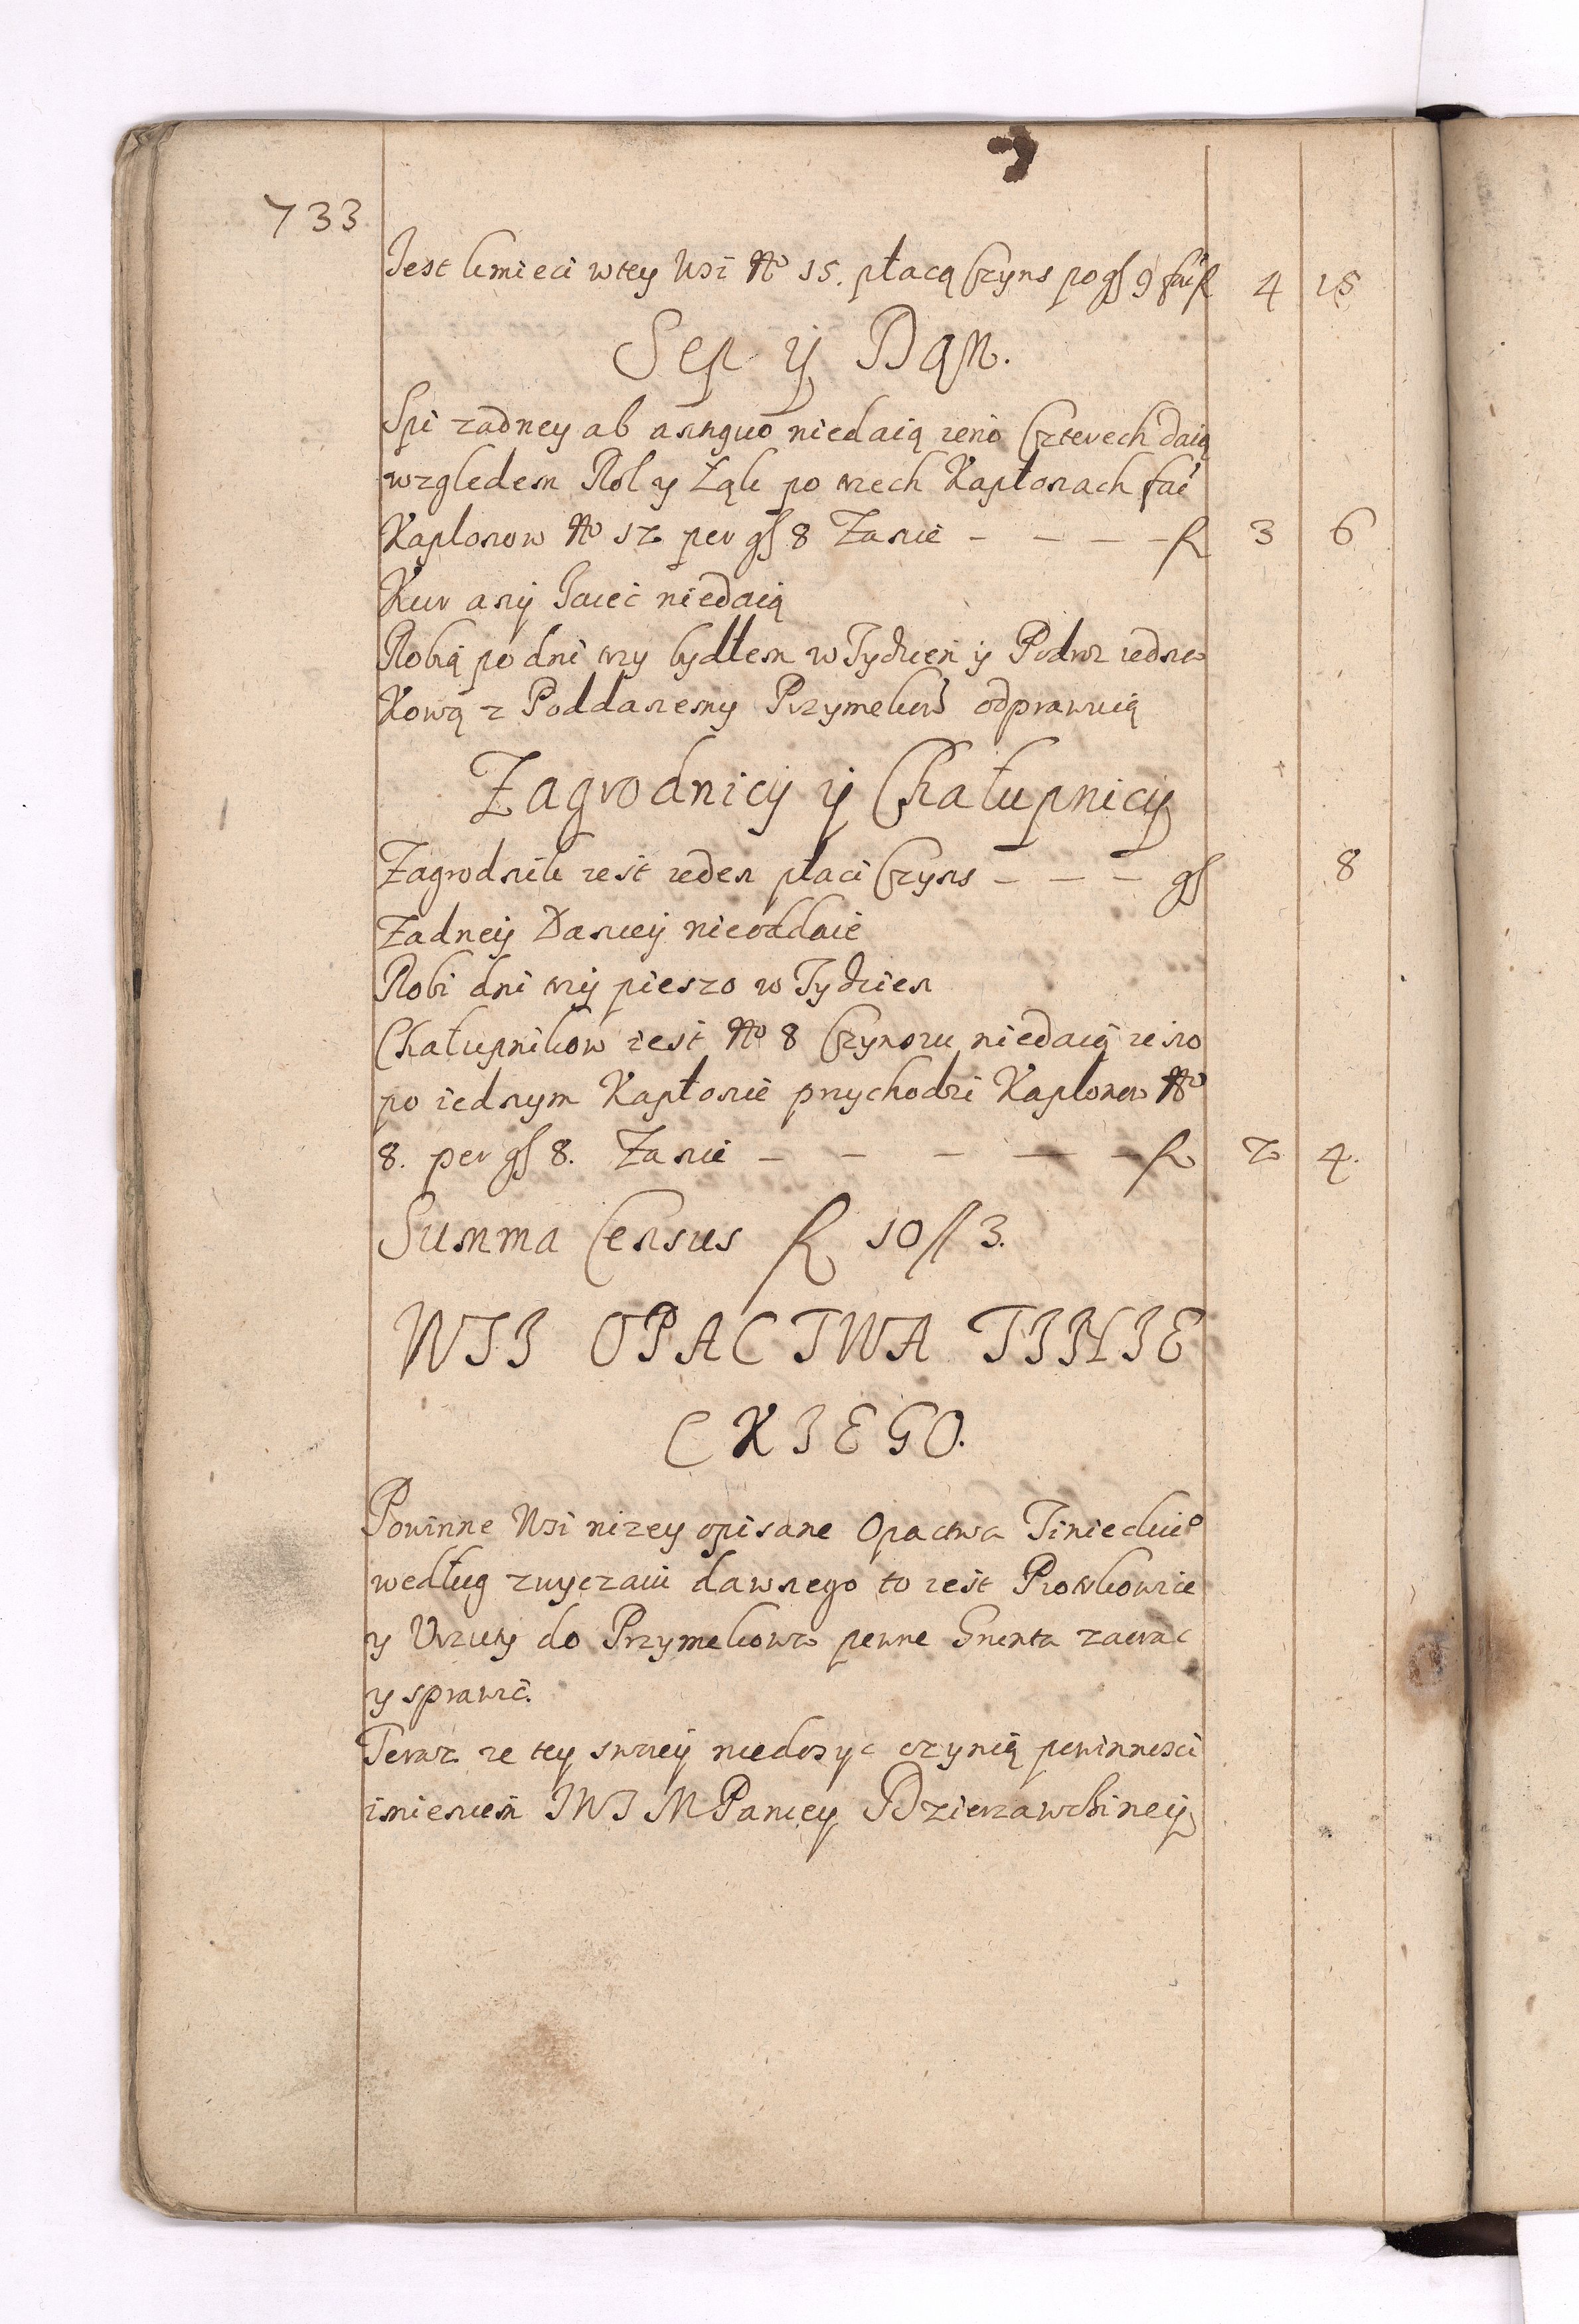 733
Jest kmieci wtey Wsi No 15. płacą Czyns po gſ 9 faċ fl 4 15
Sep ÿ Dan.
Spi zadney ab antiquo niedaią ieno Czterech daią
względem Rol y Łąk po trzech Kapłonach faċ
Kaplonow No 12 per gſ 8 Zanie - - - - fl 3 6
Kur anÿ Jaiec niedaią
Robią po dni trzy bydłem w Tydzien ÿ Podroz iedno
Kową z Poddanemy Przymeków odprawuią
Zagrodnicÿ ÿ Chałupnicÿ
Zagrodnik iest ieden płaci Czyns - - - gſ 8
Zadneÿ Danieÿ nieoddaie
Robi dni trzÿ pieszo w Tydzien
Chałupnikow iest No 8 Czynszu niedaią ieno
po iednym Kapłonie przychodzi Kaplonow No
8. per gſ 8. Zanie - - - - - fl 2 4.
Summa Census fl 10 // 3.
WSI OPACTWA TINIE
CKIEGO.
Powinne Wsi nizey opisane Opactwa Tinieckiᵒ
według zwyczaiu dawnego to iest
y do pewne Grunta zaorac
y sprawic.
Teraz ze tey swoieÿ niedosyc czynią powinnosci
imieniem JWJ MPaniey Dzierzawchineÿ